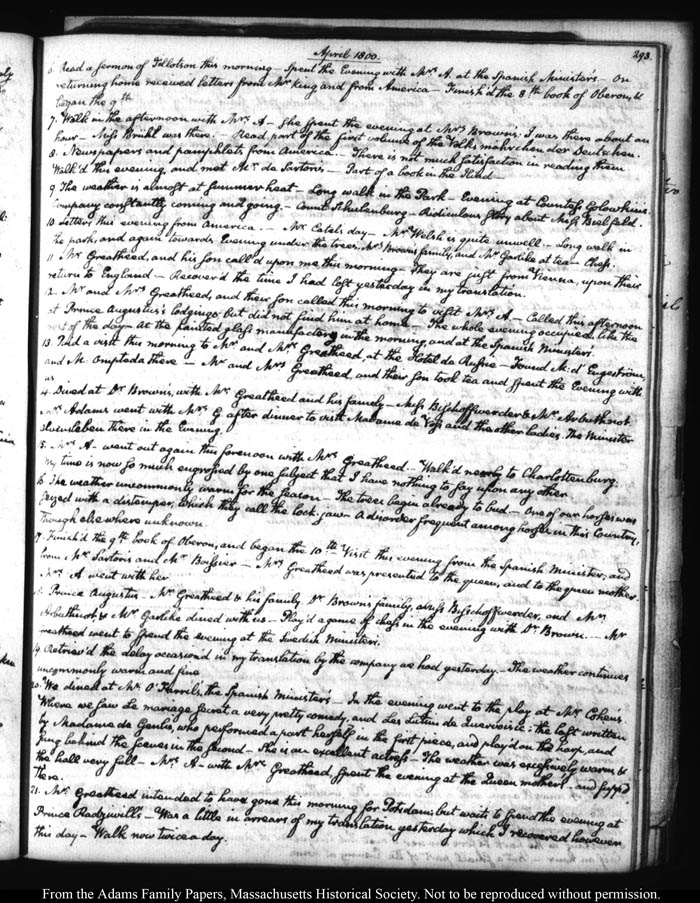 April 1800.
293.
6. Read a sermon of Tillotson this morning – Spent the Evening with Mrs. A. at the Spanish Ministers – On
returning home received letters from Mr King and from America – Finish'd the 8th. book of Oberon, &
began the 9th
7. Walk in the afternoon with Mrs A – She spent the evening at Mrs Brown's. I was there about an
hour – Miss Brühl was there. – Read part of the first volume of the Volks mährchen der Deutschen.
8. Newspapers and pamphlets from America – There is not much satisfaction in reading them
Walk'd this evening, and met Mr. de Sartoris – Part of a book in the Iliad
9. The weather is almost at summer heat – Long walk in the Park – Evening at Countess Golowkin's.
Company constantly coming and going. – Count Schulenburg – Ridiculous story about Miss Bielfeld.
10. Letters this evening from America – Mr. Catel's day – Mr Welsh is quite unwell – Long walk in
the park, and again towards Evening under the trees. Mrs Brown's family, and Mr Garlike at tea – Chess.
11. Mr. Greathead, and his son call'd upon me this morning – They are just from Vienna, upon their
return to England – Recover'd the time I had lost yesterday in my translation.
12. Mr and Mrs Greathead, and their son called this morning to visit Mrs A – Called this afternoon
at Prince Augustus's lodgings; but did not find him at home – The whole evening occupied, like the
rest of the day – At the painted glass manufactory in the morning, and at the Spanish Ministers.
13. Paid a visit this morning to Mr and Mrs Greathead, at the Hotel de Russie – Found M: d' Engeström,
and M: Ompteda there – Mr and Mrs Greathead, and their son took tea and spent the Evening with
us
14. Dined at Dr Brown's, with Mr Greathead and his family – Miss Bischoffwerder & Mr Arbuthnot.
Mrs Adams went with Mrs G after dinner to visit Madame de Voss and the other ladies. The Minister
Alvensleben there in the Evening.
15. Mrs A – went out again this forenoon with Mrs Greathead. – Walk'd nearly to Charlottenburg.
My time is now so much engrossed by one subject that I have nothing to say upon any other
16. The weather uncommonly warm for the season – The trees begin already to bud – One of our horses was
seized with a distemper, which they call the lock-jaw – A disorder frequent among horses in this Country,
though elsewhere unknown.
17. Finish'd the 9th book of Oberon, and began the 10th Visit this evening from the Spanish Minister, and
from Mr Sartoris and Mr – Mrs Greathead was presented to the queen, and to the queen mother.
Mrs A went with her
18. Prince Augustus – Mr Greathead & his family. Dr Brown's family, Miss Bischoffwerder, and Mr
Arbuthnot, & Mr Garlike dined with us – Play'd a game of chess in the evening with Dr. Brown. – Mr
Greathead went to spend the evening at the Swedish Ministers.
19. Retriev'd the delay occasion'd in my translation by the company we had yesterday. – The weather continues
uncommonly warm and fine
20. We dined at Mr O'Farrill's, the Spanish Minister's – In the evening went to the play at Mr Cohens
Where we saw Le mariage secret, a very pretty comedy, and Les : the last written
by Madame de Genlis, who performed a part herself in the first piece, and play'd on the harp, and
sung behind the scenes in the second – She is an excellent actress – The weather was excessively warm &
the hall very full – Mrs A – with Mrs Greathead, spent the evening at the Queen mothers – and supp'd
there.
21. Mr Greathead intended to have gone this morning for Potsdam, but waits to spend the evening at
Prince Radzivill's – Was a little in arrears of my translation yesterday which I recovered however
this day – Walk now twice a day.
From the Adams Family Papers, Massachusetts Historical Society. Not to be reproduced without permission.